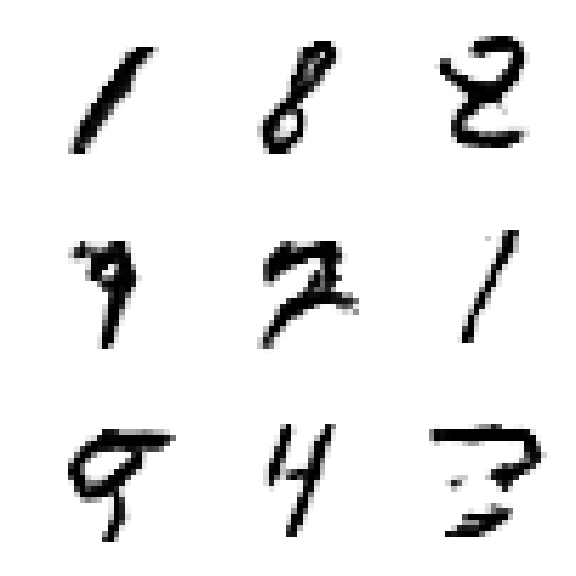 1 8 8
9 2 1
9 4 3